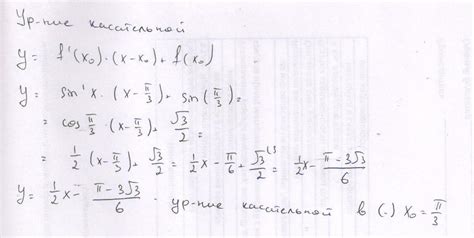 Ур-ние касательной
y = f'(x₀)·(x-x₀) + f(x₀)
y = sin'x · (x - π/3) + sin(π/3) =
= cos π/3 · (x - π/3) + √3/2 =
= 1/2 (x - π/3) + √3/2 = 1/2 x - π/6 + √3/2 ⁽³ = 1/2 x - (π - 3√3)/6
y = 1/2 x - (π - 3√3)/6 - ур-ние касательной в (·) x₀ = π/3